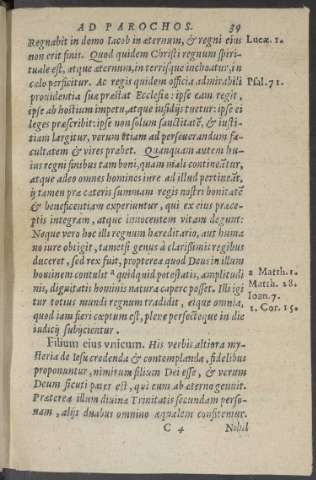 AD PAROCHOS. 39
Regnabit in domo Iacob in æternum, & regni eius Lucæ. 1.
non erit finis. Quod quidem Christi regnum spiri-
tuale est, atque æternum, in terrisque inchoatur, in
cælo perficitur. Ac regis quidem officia admirabili Psal. 71.
prouidentia suæ præstat Ecclesiæ: ipse eam regit,
ipse ab hostium impetu, atque insidijs tuetur: ipse ei
leges præscribit: ipse non solum sanctitatẽ, & iusti-
tiam largitur, verum etiam ad perseuerandum fa-
cultatem & vires præbet. Quanquam autem hu-
ius regni finibus tam boni, quam mali contineãtur,
atque adeo omnes homines iure ad illud pertineãt,
ij tamen præ cæteris summam regis nostri bonitatẽ
& beneficentiam experiuntur, qui ex eius præce-
ptis integram, atque innocentem vitam degunt:
Neque vero hoc illi regnum hæreditario, aut huma
no iure obtigit, tametsi genus à clarissimis regibus
duceret, sed rex fuit, propterea quod Deus in illum
hominem contulit a quidquid potestatis, amplitudi a Matth. 1.
nis, dignitatis hominis natura capere posset. Illi igi Matth. 28.
tur totius mundi regnum tradidit, eique omnia, Ioan. 7.
quod iam fieri cœptum est, plene perfecteque in die 1. Cor. 15.
iudicij subijcientur.
Filium eius vnicum. His verbis altiora my-
steria de Iesu credenda & contemplanda, fidelibus
proponuntur, nimirum filium Dei esse, & verum
Deum sicuti pater est, qui eum ab æterno genuit.
Præterea illum diuinæ Trinitatis secundam perso-
nam, alijs duabus omnino æqualem confitemur.
C 4 Nihil